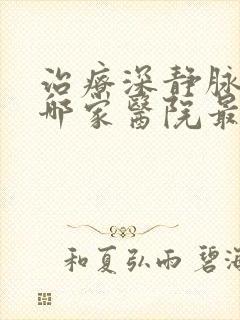 治療深静脉
哪家醫院最
和夏弘雨 碧海